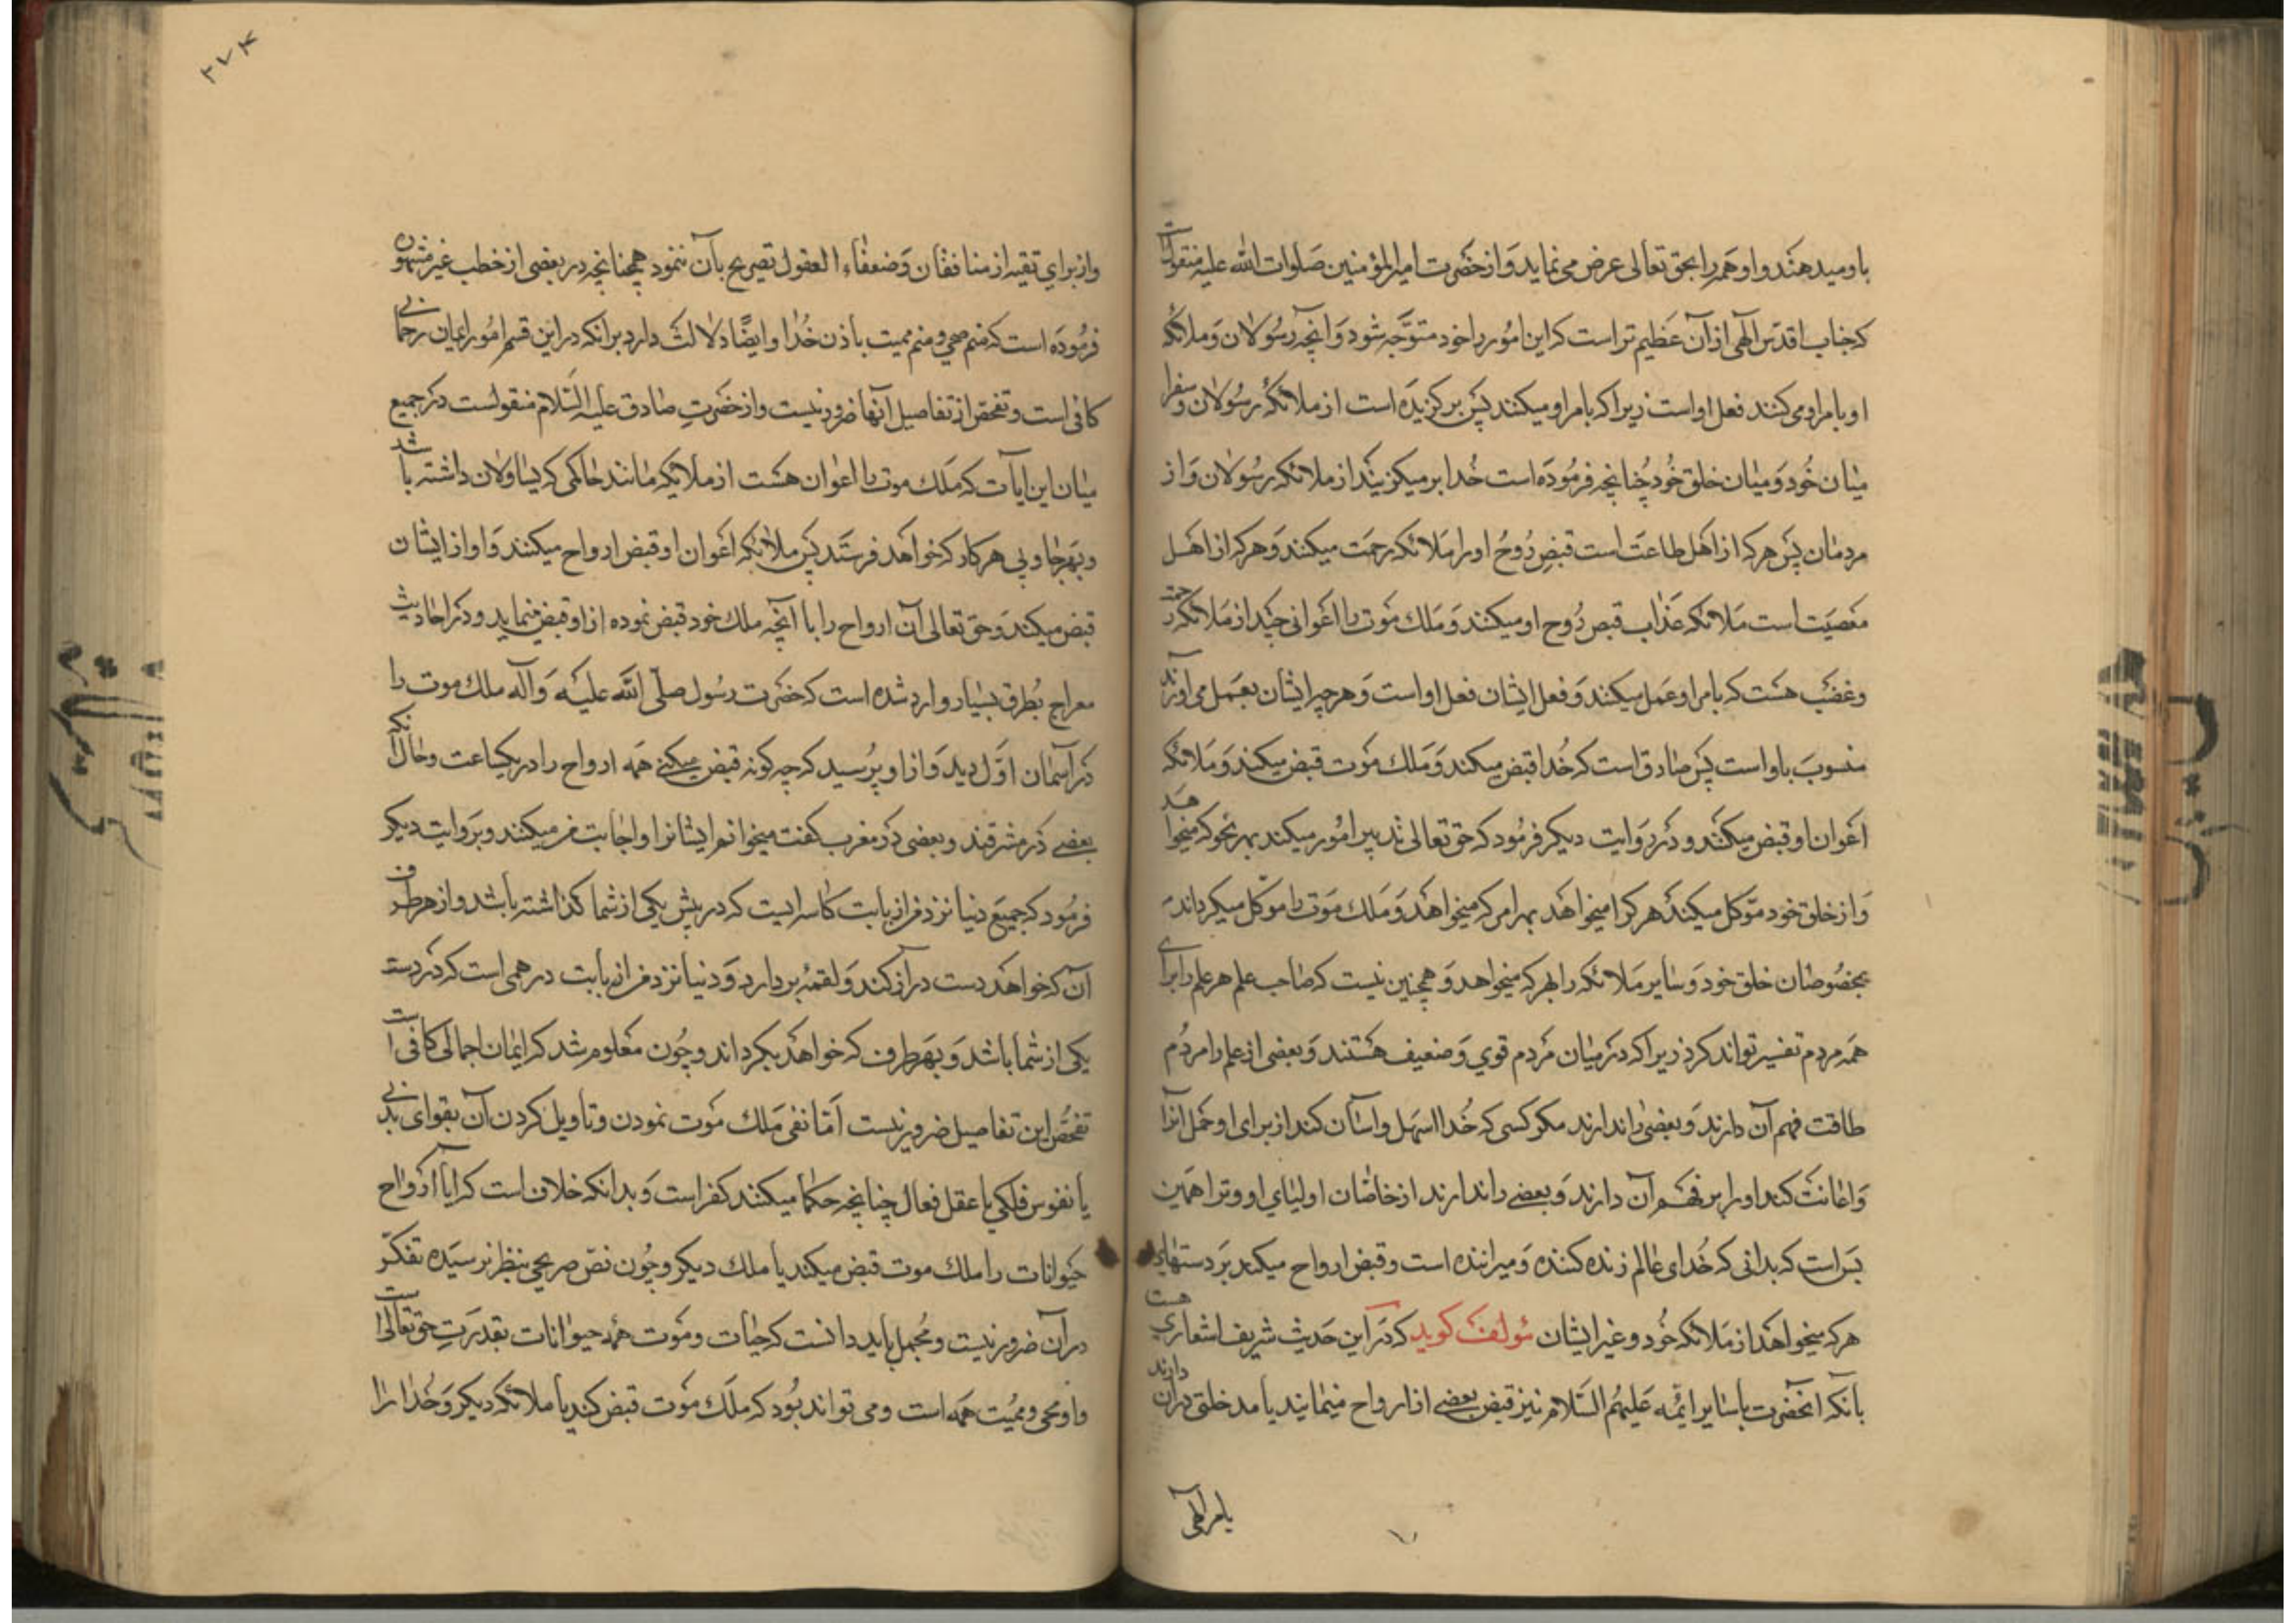 باو میدهند و او همه را بحق تعالی عرض می نماید و از حضرت امیر المؤمنین صلوات الله علیه منقولست
که جناب اقدس الهی از آن عظیم تر است که این امور را خود متوجه شود و آنچه رسولان و ملائکه
او بامر او می کنند فعل او است زیرا که بامر او میکنند پس بر کزیده است از ملائکه رسولان و سفرا
میان خود و میان خلق خود چنانچه فرموده است خدا بر میکزیند از ملائکه رسولان و از
مردمان پس هر که از اهل طاعت است قبض روح او را ملائکه رحمت میکنند و هر که از اهل
معصیت است ملائکه عذاب قبض روح او میکنند و ملک موت را اعوانی چند از ملائکه رحمت
و غضب هست که بامر او عمل میکنند و فعل ایشان فعل او است و هر چه ایشان بعمل می آورند
منسوب باو است پس صادق است که خدا قبض میکند و ملک موت قبض میکند و ملائکه
اعوان او قبض میکنند و در روایت دیکر فرمود که حق تعالی تدبیر امور میکند بهر نحو که میخواهد
و از خلق خود موکل میکند هر کرا میخواهد بهر امر که میخواهد و ملک موت را موکل میکرداند
بخصوصان خلق خود و سایر ملائکه را بهر که میخواهد و همچنین نیست که صاحب علم هر علم را برای
همه مردم تفسیر تواند کرد زیرا که در میان مردم قوی و ضعیف هستند و بعضی از علم را مردم
طاقت فهم آن دارند و بعضی را ندارند مکر کسی که خدا سهل و اسان کند از برای او حمل انرا
و اعانت کند او را بر فهم آن دارند و بعضی را ندارند از خاصان اولیای او و ترا همین
بس است که بدانی که خدای عالم زنده کننده و میراننده است و قبض ارواح میکند بر دستهای
هر که میخواهد از ملائکه خود و غیر ایشان مؤلف کوید که در این حدیث شریف اشعاری هست
بآنکه انحضرت با سایر ائمه علیهم السلام نیز قبض بعضی از ارواح مینمایند یا مدخلی در ان دارند
بامر الهی
۲۷۴
و از برای تقیه از منافقان و ضعفاء العقول تصریح بآن ننمود همچنانچه در بعضی از خطب غیر مشهوره
فرموده است که منم محیی و منم ممیت بأذن خدا و ایضا دلالت دارد بر انکه در این قسم امور ایمان اجمالی
کافی است و تفحص از تفاصیل آنها ضرور نیست و از حضرت صادق علیه السلام منقولست در جمیع
میان این ایات که ملک موت را اعوان هست از ملائکه مانند حاکمی که یساولان داشته باشد
و بهر جا و پی هر کار که خواهد فرستد پس ملائکه اعوان او قبض ارواح میکنند و او از ایشان
قبض میکند و حق تعالی آن ارواح را با آنچه ملک خود قبض نموده از او قبض مینماید و در احادیث
معراج بطرق بسیار وارد شده است که حضرت رسول صلی الله علیه و آله ملک موت را
در آسمان اول دید و از او پرسید که چه کونه قبض میکنی همه ارواح را در یکساعت و حال آنکه
بعضی در مشرقند و بعضی در مغرب کفت میخوانم ایشانرا و اجابت من میکنند و بروایت دیکر
فرمود که جمیع دنیا نزد من از بابت کاسه ایست که در پیش یکی از شما کذاشته باشد و از هر طرف
آن که خواهد دست دراز کند و لقمه بر دارد و دنیا نزد من از بابت درهمی است که در دست
یکی از شما باشد و بهر طرف که خواهد بکرداند و چون معلوم شد که ایمان اجمالی کافی است
تفحص این تفاصیل ضرور نیست اما نفی ملک موت نمودن و تاویل کردن آن بقوای بدنی
یا نفوس فلکی یا عقل فعال چنانچه حکما میکنند کفر است و بدانکه خلاف است که ایا ارواح
حیوانات را ملک موت قبض میکند یا ملک دیکر و چون نص صریحی بنظر نرسیده تفکر
در آن ضرور نیست و مجمل باید دانست که حیات و موت همه حیوانات بقدرت حق تعالی است
و او محیی و ممیت همه است و می تواند بود که ملک موت قبض کند یا ملائکه دیکر و خدا را